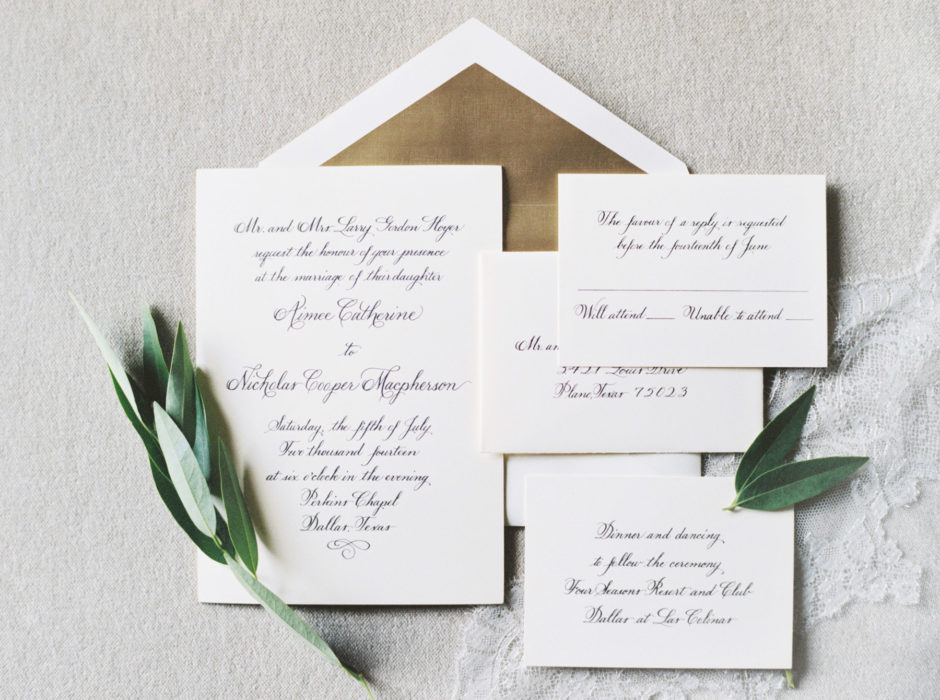 Mr. and Mrs Larry Gordon Hoyer
request the honour of your presence
at the marriage of their daughter
Aimee Catherine
to
Nicholas Cooper Macpherson
Saturday, the fifth of July
Two thousand fourteen
at six o'clock in the evening
Perkins Chapel
Dallas, Texas
The favour of a reply is requested
before the fourteenth of June
Will attend Unable to attend
Mr. an
3421 Louis Drive
Plano, Texas 75023
Dinner and dancing
to follow the ceremony
Four Seasons Resort and Club
Dallas at Las Colinas